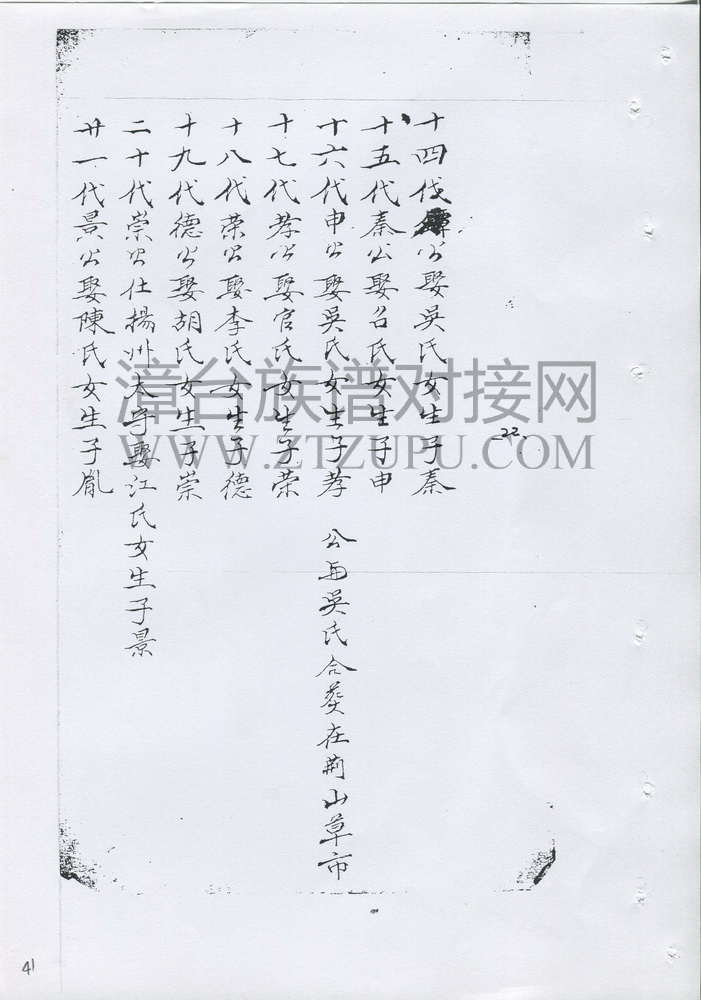 十四代公娶吴氏女生子秦
十五代秦公娶名氏女生子申
十六代申公娶吴氏女生子孝 公与吴氏合葵在荆山草市
十七代孝公娶官氏女生子荣
十八代荣公娶李氏女生子德
十九代德公娶胡氏女生子崇
二十代崇公仕揚州太守娶江氏女生子景
廿一代景公娶陳氏女生子胤
22.
漳台族谱对接网
WWW.ZTZUPU.COM
41